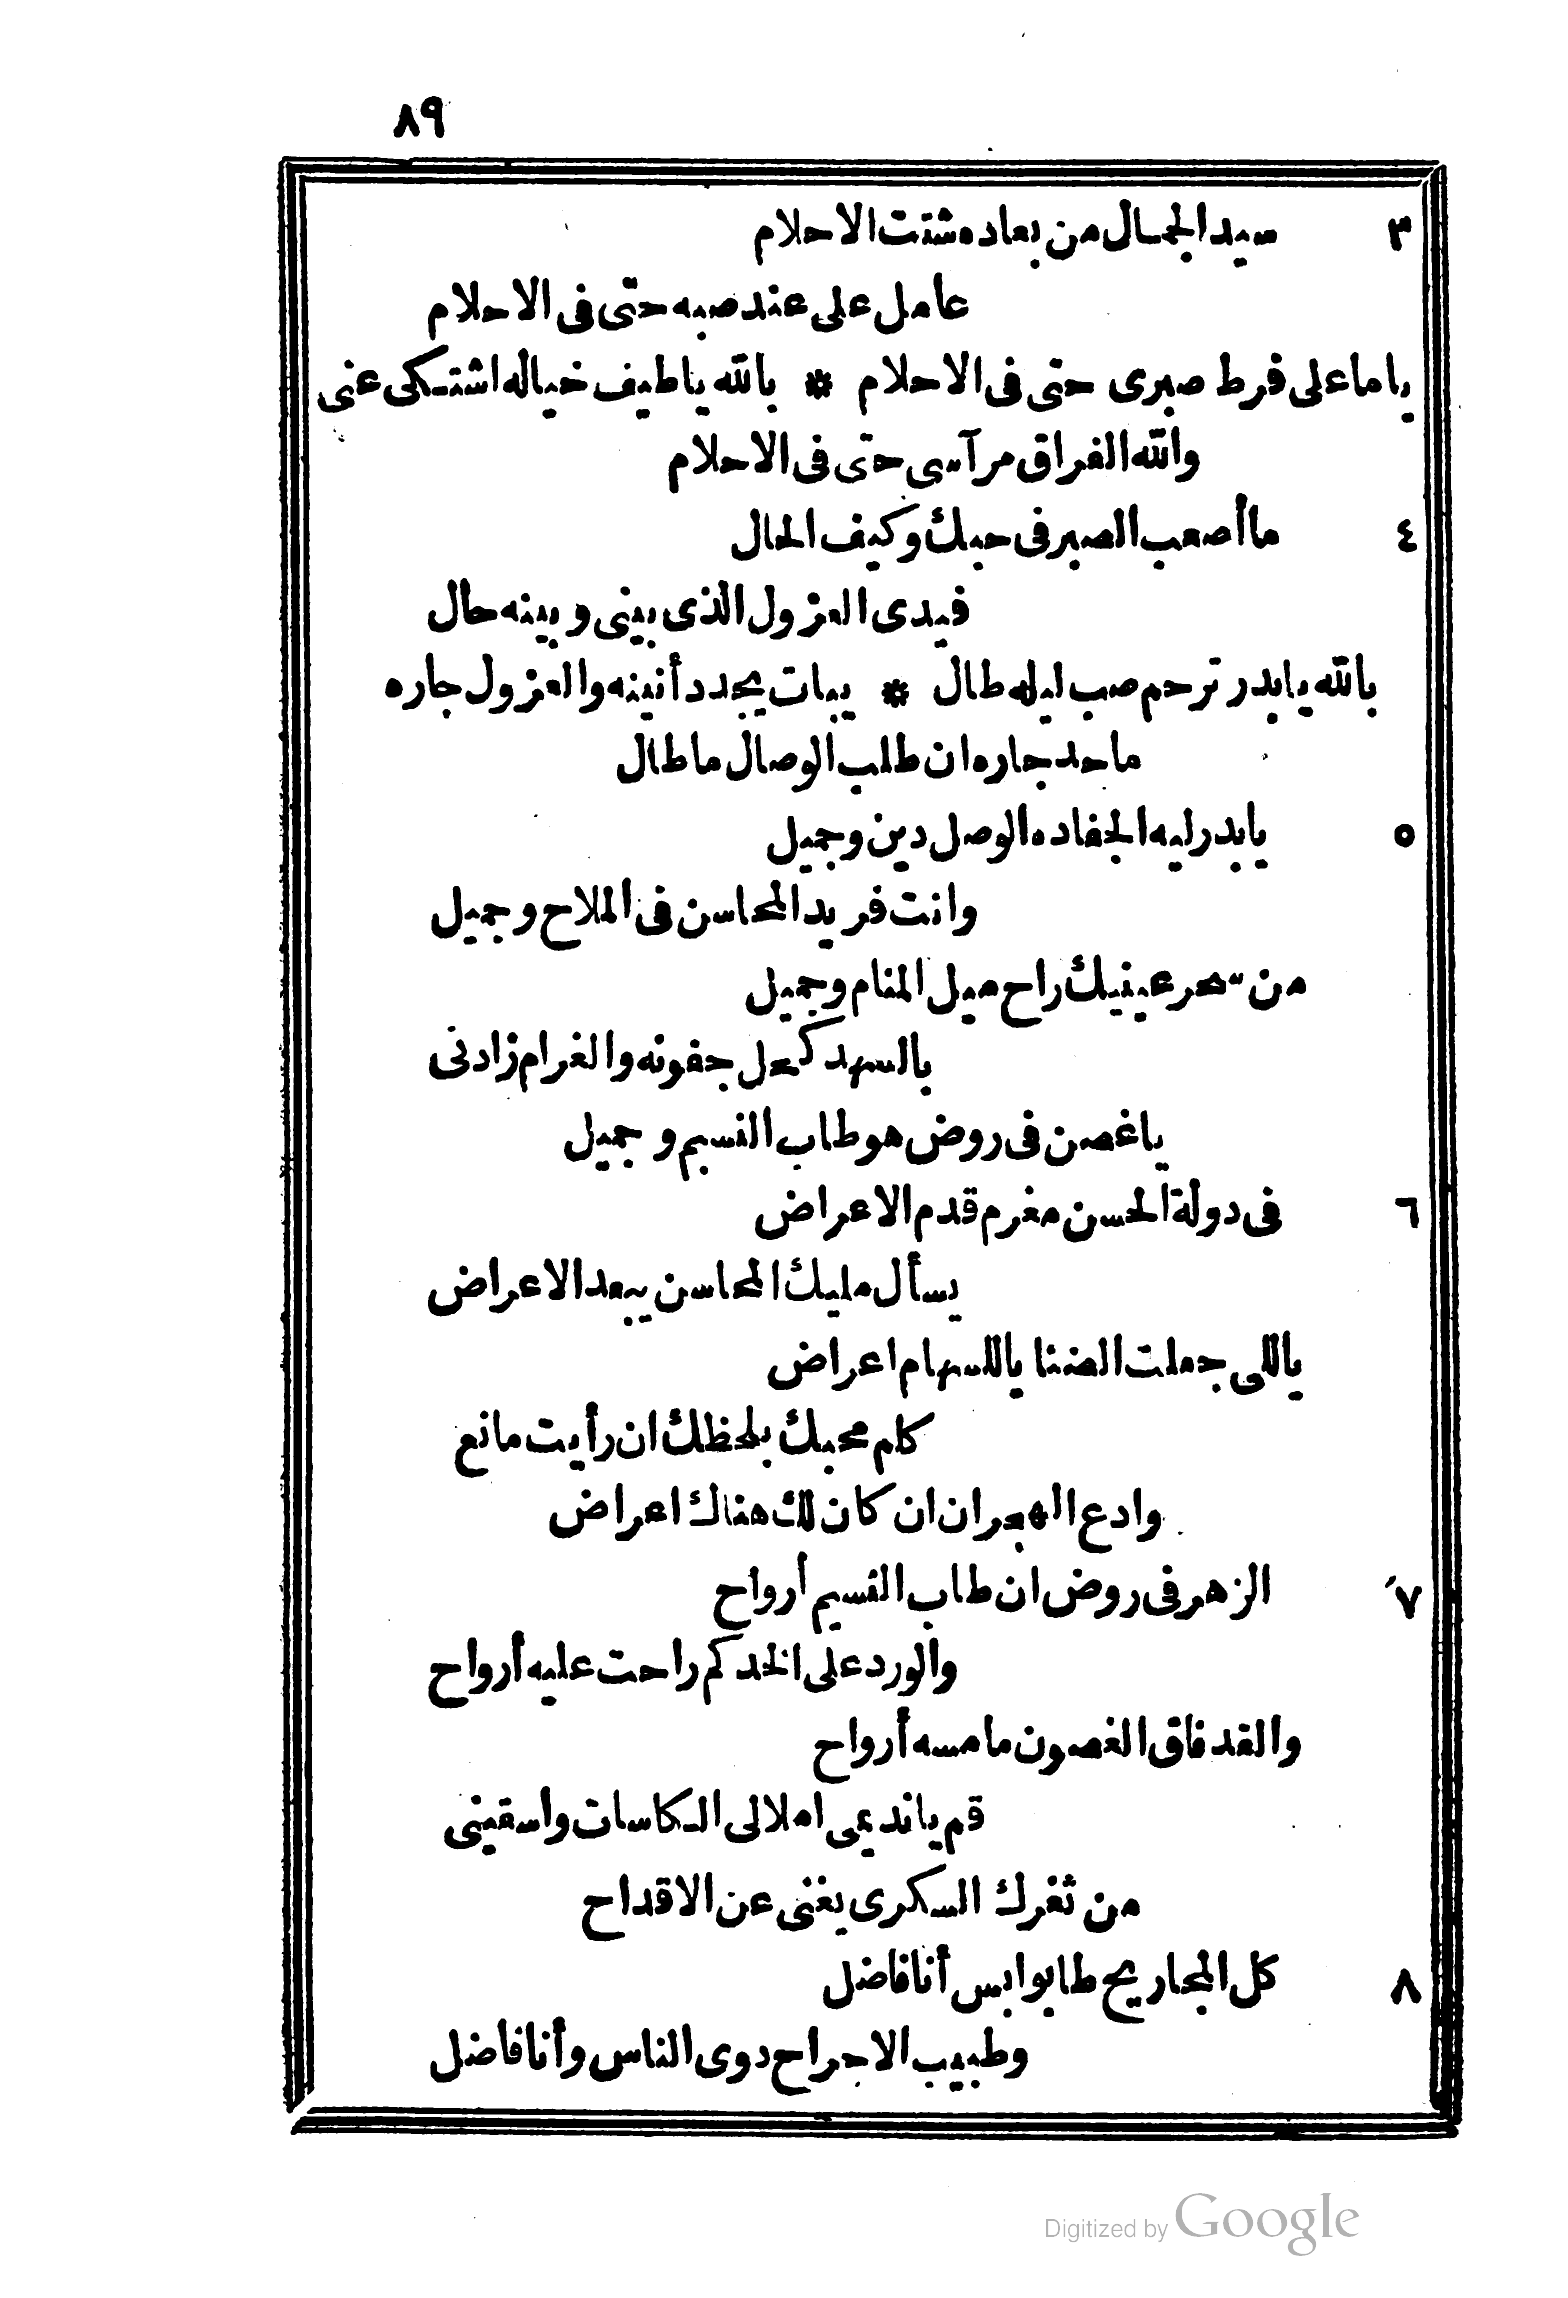 ٨٩
٣ سيد الجمال من بعاده شتت الاحلام
عامل على عند صبه حتى فى الاحلام
ياما على فرط صبرى حتى فى الاحلام * بالله ياطيف خياله اشتكى عنى
والله الفراق مر آسى حتى فى الاحلام
٤ ما أصعب الصبر فى حبك وكيف الحال
فيدى العزول الذى بينى وبينه حال
بالله يابدر ترحم صب ليله طال * يبات يجدد أنينه والعزول جاره
ماحد جاره ان طلب الوصال ماطال
٥ يابدر ليه الجفاده الوصل دين وجميل
وانت فريد المحاسن فى الملاح وجميل
من سحر عينيك راح ميل المنام وجميل
بالسهد كحل جفونه والغرام زادنى
ياغصن فى روض هو طاب النسيم وجميل
٦ فى دولة الحسن مغرم قدم الاعراض
يسأل مليك المحاسن يبعد الاعراض
ياللى جعلت الضنا ياللسهام اعراض
كام محبك بلحظك ان رأيت مانع
وادع الهجران ان كان لك هناك اعراض
٧ الزهر فى روض ان طاب النسيم أرواح
والورد على الخد كم راحت عليه أرواح
والقد فاق الغصون مامسه أرواح
قم يانديمى املالى الكاسات واسقينى
من ثغرك السكرى يغنى عن الاقداح
٨ كل المجاريح طابوا بس أنافاضل
وطبيب الاجراح دوى الناس وأنافاضل
Digitized by Google